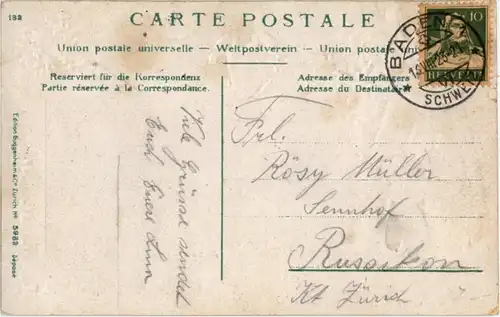 182
CARTE POSTALE
Union postale universelle — Weltpostverein — Union postale
Reserviert für die Korrespondenz
Partie réservée à la Correspondance.
Adresse des Empfängers
Adresse du Destinataire
10
HELVETIA
BADEN
SCHWEIZ
Frl.
Rösy Müller
Sennhof
Russikon
Kt. Zürich
Viele Grüsse sendet
Euch Eure
Zürich Nº 5983 déposé